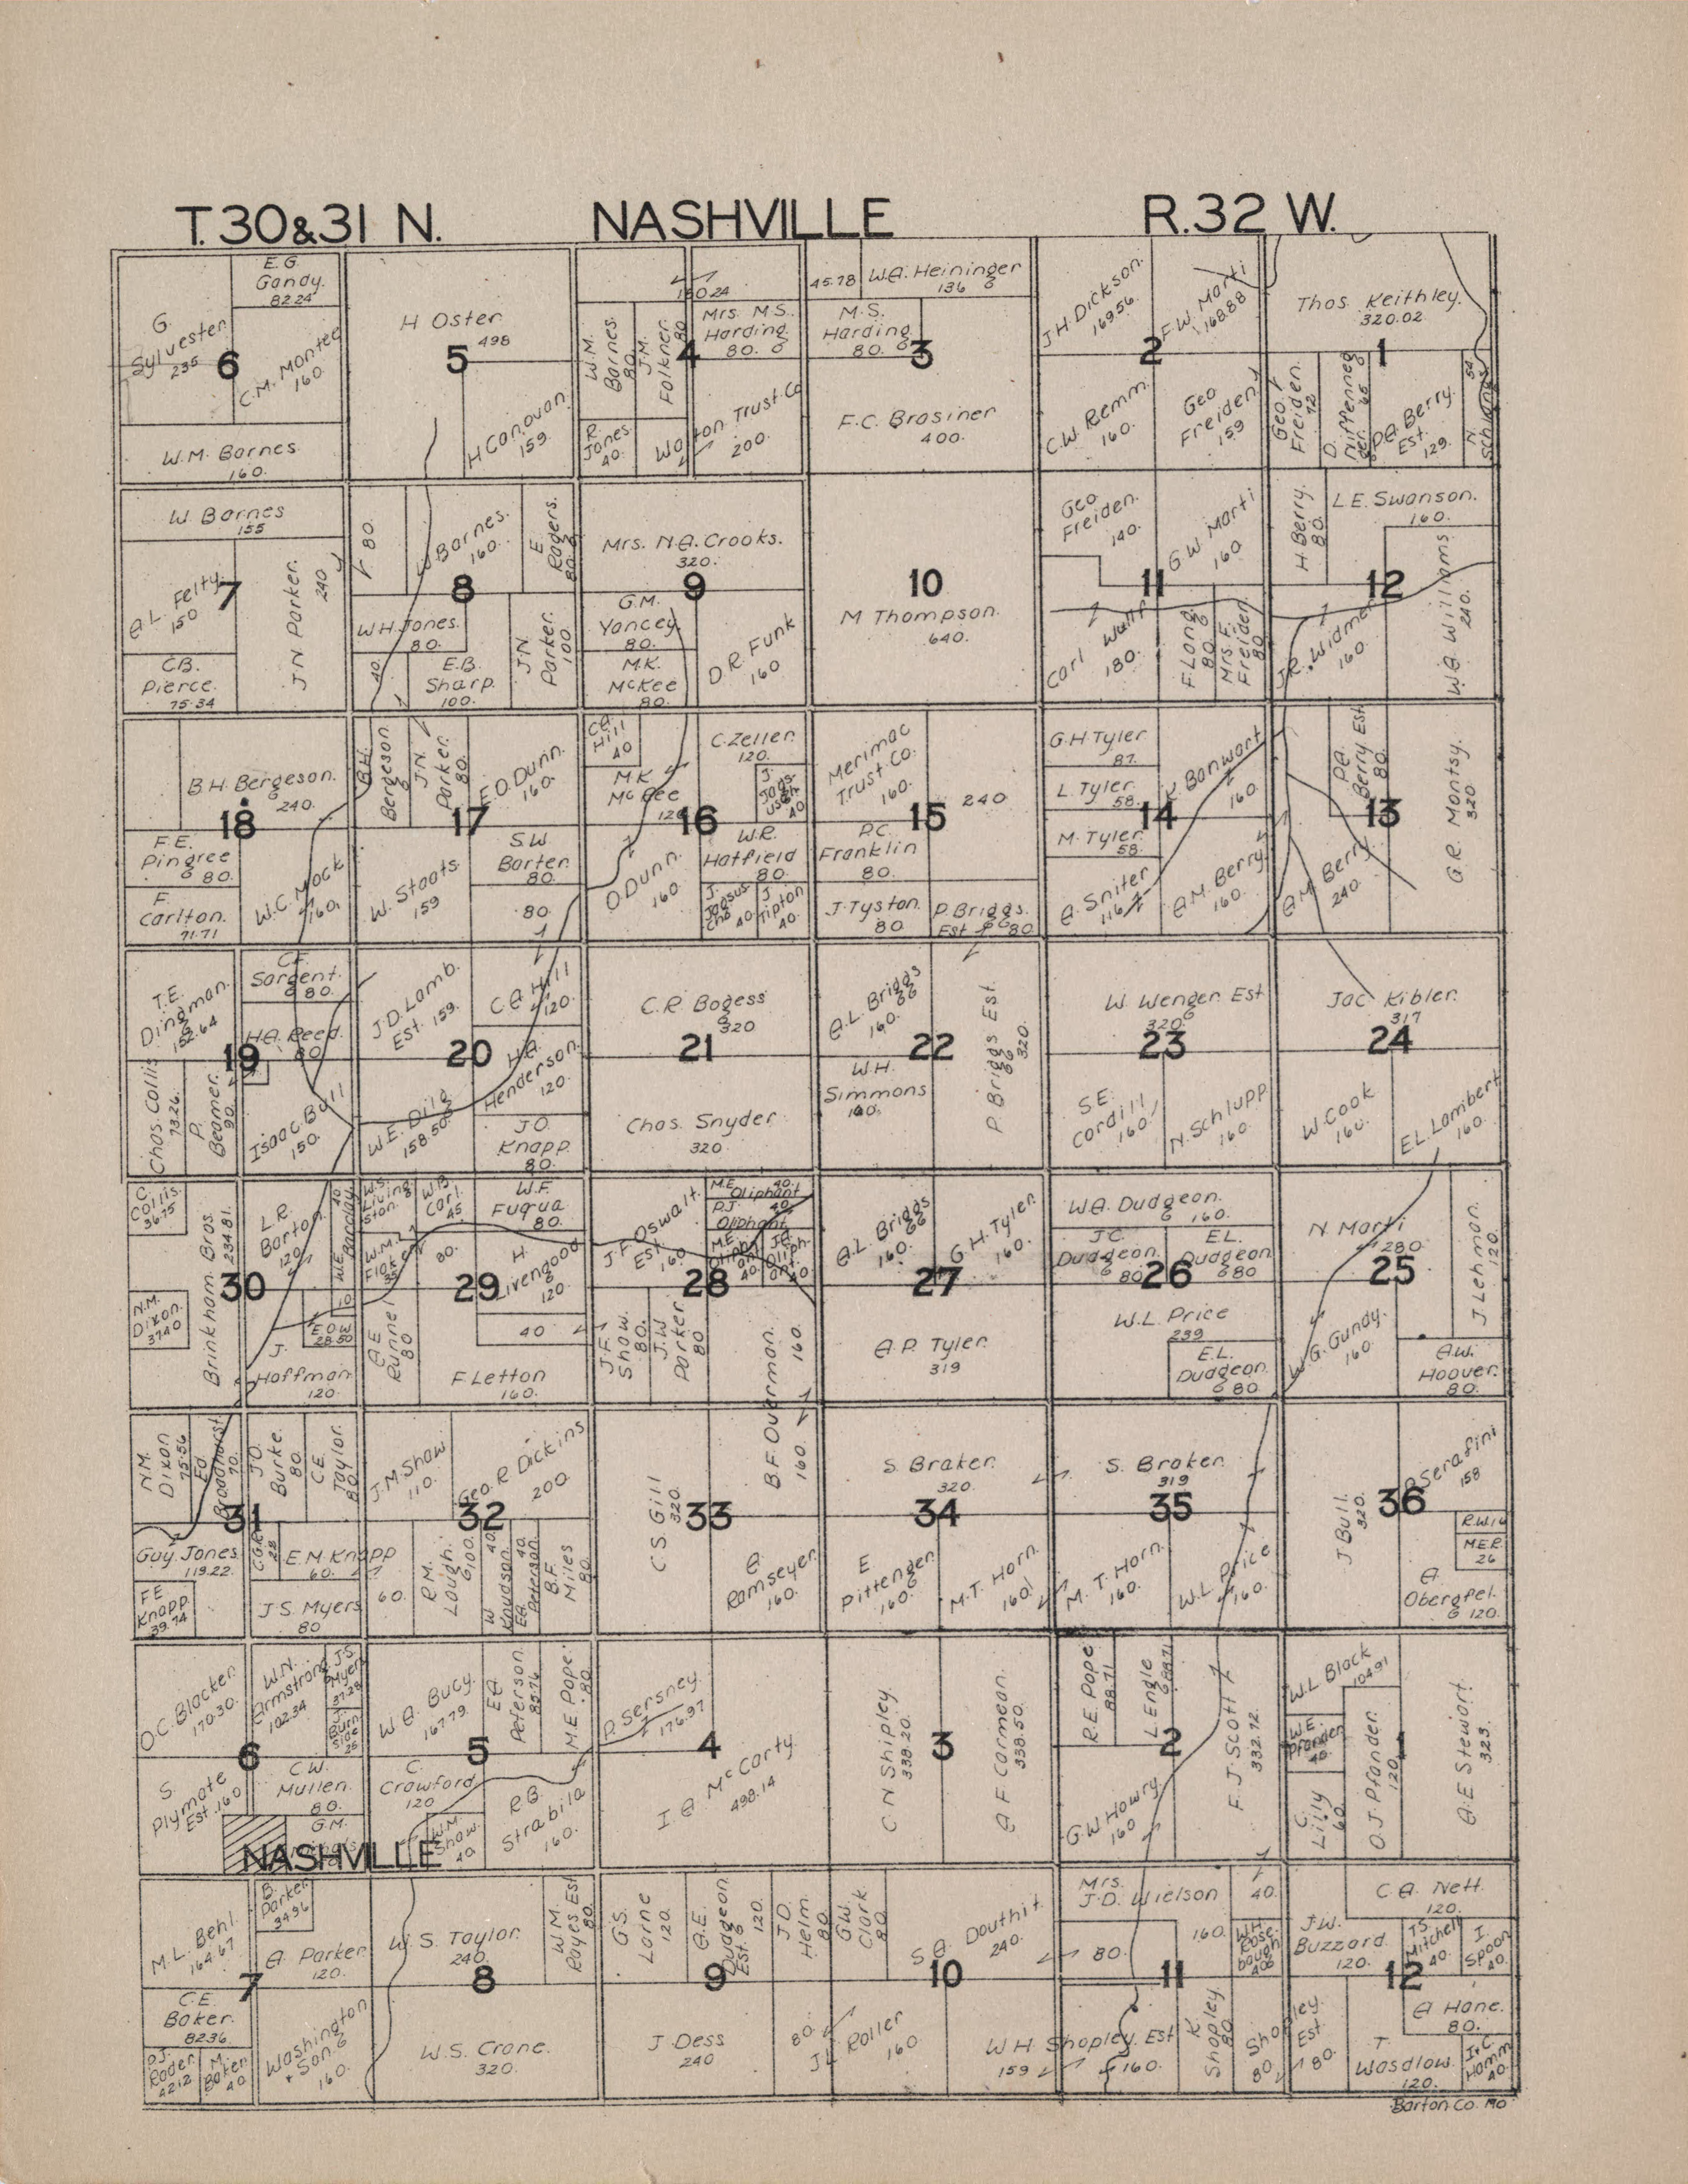 T. 30 & 31 N. NASHVILLE R. 32 W.
G.
Sylvester
235
E. G.
Gandy.
82.24
C.M. Monteg
160.
6
W.M. Barnes
160.
H Oster
498
5
H Canovan
159.
180.24
W.M.
Barnes.
80.
J.M.
Falkner.
80
Mrs. M.S.
Harding
80. 6
4
R.
Jones.
40.
Walton Trust Co
200.
45.78
W.A. Heininger
136 6
M.S.
Harding
80. 6
3
F.C. Brasiner
400.
J.H. Dickson.
169.56.
F.W. Marti
168.88
2
C.W. Remm.
160.
Geo
Freiden
159
Thos. Keithley.
320.02.
1
Geo. F
Freiden.
72
D.
P.A. Berry.
Est.
129.
54
N.
W. Barnes
155
A.L. Felty
150
7
J.N. Parker.
240
C.B.
Pierce.
75.34
80.
W Barnes.
160.
E.
Ragers.
80.
8
W.H. Jones.
80.
40.
E.B.
Sharp.
100.
J.N.
Parker.
100.
Mrs. N.A. Crooks.
320.
9
G.M.
Yancey.
80.
M.K.
McKee
80.
D.R. Funk
160
10
M Thompson.
640.
Geo
Freiden.
140.
G.W. Marti
160.
11
Carl Walff
180.
F. Long.
80
Mrs. F.
Freiden.
80
H. Berry.
80.
L.E. Swanson.
160.
12
J.R. Widmer
160.
W.A. Williams
240.
B.H. Bergeson.
6
240.
18
F.E.
Pingree
6 80.
F.
Carlton.
71.71
W.C. Mock
160.
B.H.
Bergeson
6
J.N.
Parker.
80.
E.O. Dunn.
160.
17
W. Staats.
159
S.W.
Barter.
80.
80.
C.A.
Hill
40
M.K.
McKee
120
C. Zeller.
120.
J.
40
16
O. Dunn.
160.
W.R.
Hatfield
80.
J.
40.
J.
Tipton
40.
Merimac
Trust Co.
160.
240.
15
P.C.
Franklin
80.
J. Tyston.
80
P. Briggs.
Est 80
G.H. Tyler
87.
L. Tyler.
58.
K. Banwart
160.
14
M. Tyler.
58.
A. Sniter
116
A.M. Berry.
160.
P.A.
Berry Est
80.
13
A.M. Berry
240.
G.R. Montsy.
320.
T.E.
Dingman.
152.64
C.F.
Sargent.
6 80.
H.A. Reed.
80.
19
Chas. Collis
73.26.
P.
Beamer.
90.
Isaac Ball
150.
J.D. Lamb.
Est. 159.
C.A. Hill
120.
20
H.A.
Henderson.
120.
W.E. Dilg
158.50
J.O.
Knapp.
80.
C.R. Bogess
6
320
21
Chas. Snyder
320.
A.L. Briggs
66
160.
22
W.H.
Simmons
160.
P. Briggs Est.
66
320.
W. Wenger. Est
320. 6
23
S.E.
Cordill
160.
N. Schlupp
160.
Jac. Kibler.
317
24
W. Cook
160.
E.L. Lambert
160.
C.
Collis.
36.75
L.R.
Barton.
120
W.E.
Barclay
10
Brinkham. Bros.
234.81.
30
N.M.
Dixon.
37.40
E.O.W.
28.50
J.
Hoffman.
120.
W.S.
Livingston.
W.B.
Carl.
45
W.F.
Fuqua
80.
W.M.
80.
H.
Livengood
6
120.
29
40
A.E.
Runnel
80
F. Letton
160.
J.F. Oswalt.
Est. 160
M.E. 40.
Oliphant
P.J. 40
Oliphant
M.E.
40
40
28
J.F.
Shaw.
80.
J.W.
Parker
80
B.F. Overman.
160.
160.
A.L. Briggs
66
160.
G.H. Tyler.
160.
27
A.P. Tyler.
319
W.A. Dudgeon.
6 160.
J.C.
Dudgeon.
6 80
E.L.
Dudgeon
6 80
26
W.L. Price
239
E.L.
Dudgeon.
6 80.
N Marti
280
25
J. Lehman.
120.
W.G. Gundy.
160.
A.W.
Hoover.
80.
N.M.
Dixon
75.56
Ed
Broadhurst
70.
J.O.
Burke.
80.
C.E.
Taylor.
80
31
Guy. Jones.
119.22.
C.G.R.
28
E.M. Knapp
60.
60.
F.E.
Knapp.
39.74
J.S. Myers
80
J.M. Shaw
110.
Geo. R. Dickins
200.
32
R.M.
Lough.
6 100.
W
Knudson.
40
E.A.
Peterson.
40.
B.F.
Miles
80
C.S. Gill
320.
33
A.
Ramseyer.
160.
S. Braker.
320.
34
E
Pittenger.
160. 6
M.T. Horn.
160.
S. Braker.
319
35
M. T. Horn.
160.
W.L. Price
160.
J Bull.
320.
36
P. Serafini
158
R.W.
M.E.R.
26
A.
Obergfel.
6 120.
O.C. Blacker.
170.30.
W.N.
Armstrong
102.34
J.S.
Myers
37.28
J.
Burnside
25
6
S.
Plymate
Est. 160
C.W.
Mullen.
80.
G.M.
NASHVILLE
W.A. Bucy.
167.79
E.A.
Peterson.
85.76
M.E. Pope.
80.
5
C.
Crawford
120
W.M.
Shaw.
40
R.B.
Strabila
160.
P. Sersney.
176.97
4
I.A. McCarty.
498.14
C N Shipley.
338.20.
3
A F Carmean.
338.50.
R.E. Pope
88.71
L. Engle
6 88.71
2
G.W. Howry.
160
F. J. Scott
332.12.
W.L. Black
104.91
W.E.
Pfander
40.
O.J. Pfander.
120
1
C.
Lilly
60.
A.E Stewart.
323.
M.L. Behl.
164.67
B.
Parker.
34.96
A. Parker.
120.
7
C.E.
Baker.
82.36
P.J.
Rader.
42.12
M.
Baker.
40
Washington
+ Son. 6
160.
W.S. Taylor.
240.
W.M.
Rayes Est
80.
8
W.S. Crane.
320.
G.S.
Larne
120.
A.E.
Dudgeon.
Est. 6
120.
J.D.
Helm.
80.
9
J. Dess
240
80.
J L Roller
160
G.W.
Clark.
80
S A. Douthit.
240.
10
W H Shapley. Est
159
160.
Mrs.
J.D. Wielson
160.
40.
80.
W.H.
Rosebough
40 6
11
K.
Shapley.
80.
Shapley.
Est
80.
80.
C A. Nett.
120.
J.W.
Buzzard.
120.
T.S.
Mitchell
40.
I.
Spoon
40.
12
A Hane.
80.
T
Wasdlow.
120.
I + C.
Hamm
40.
Barton. Co. Mo